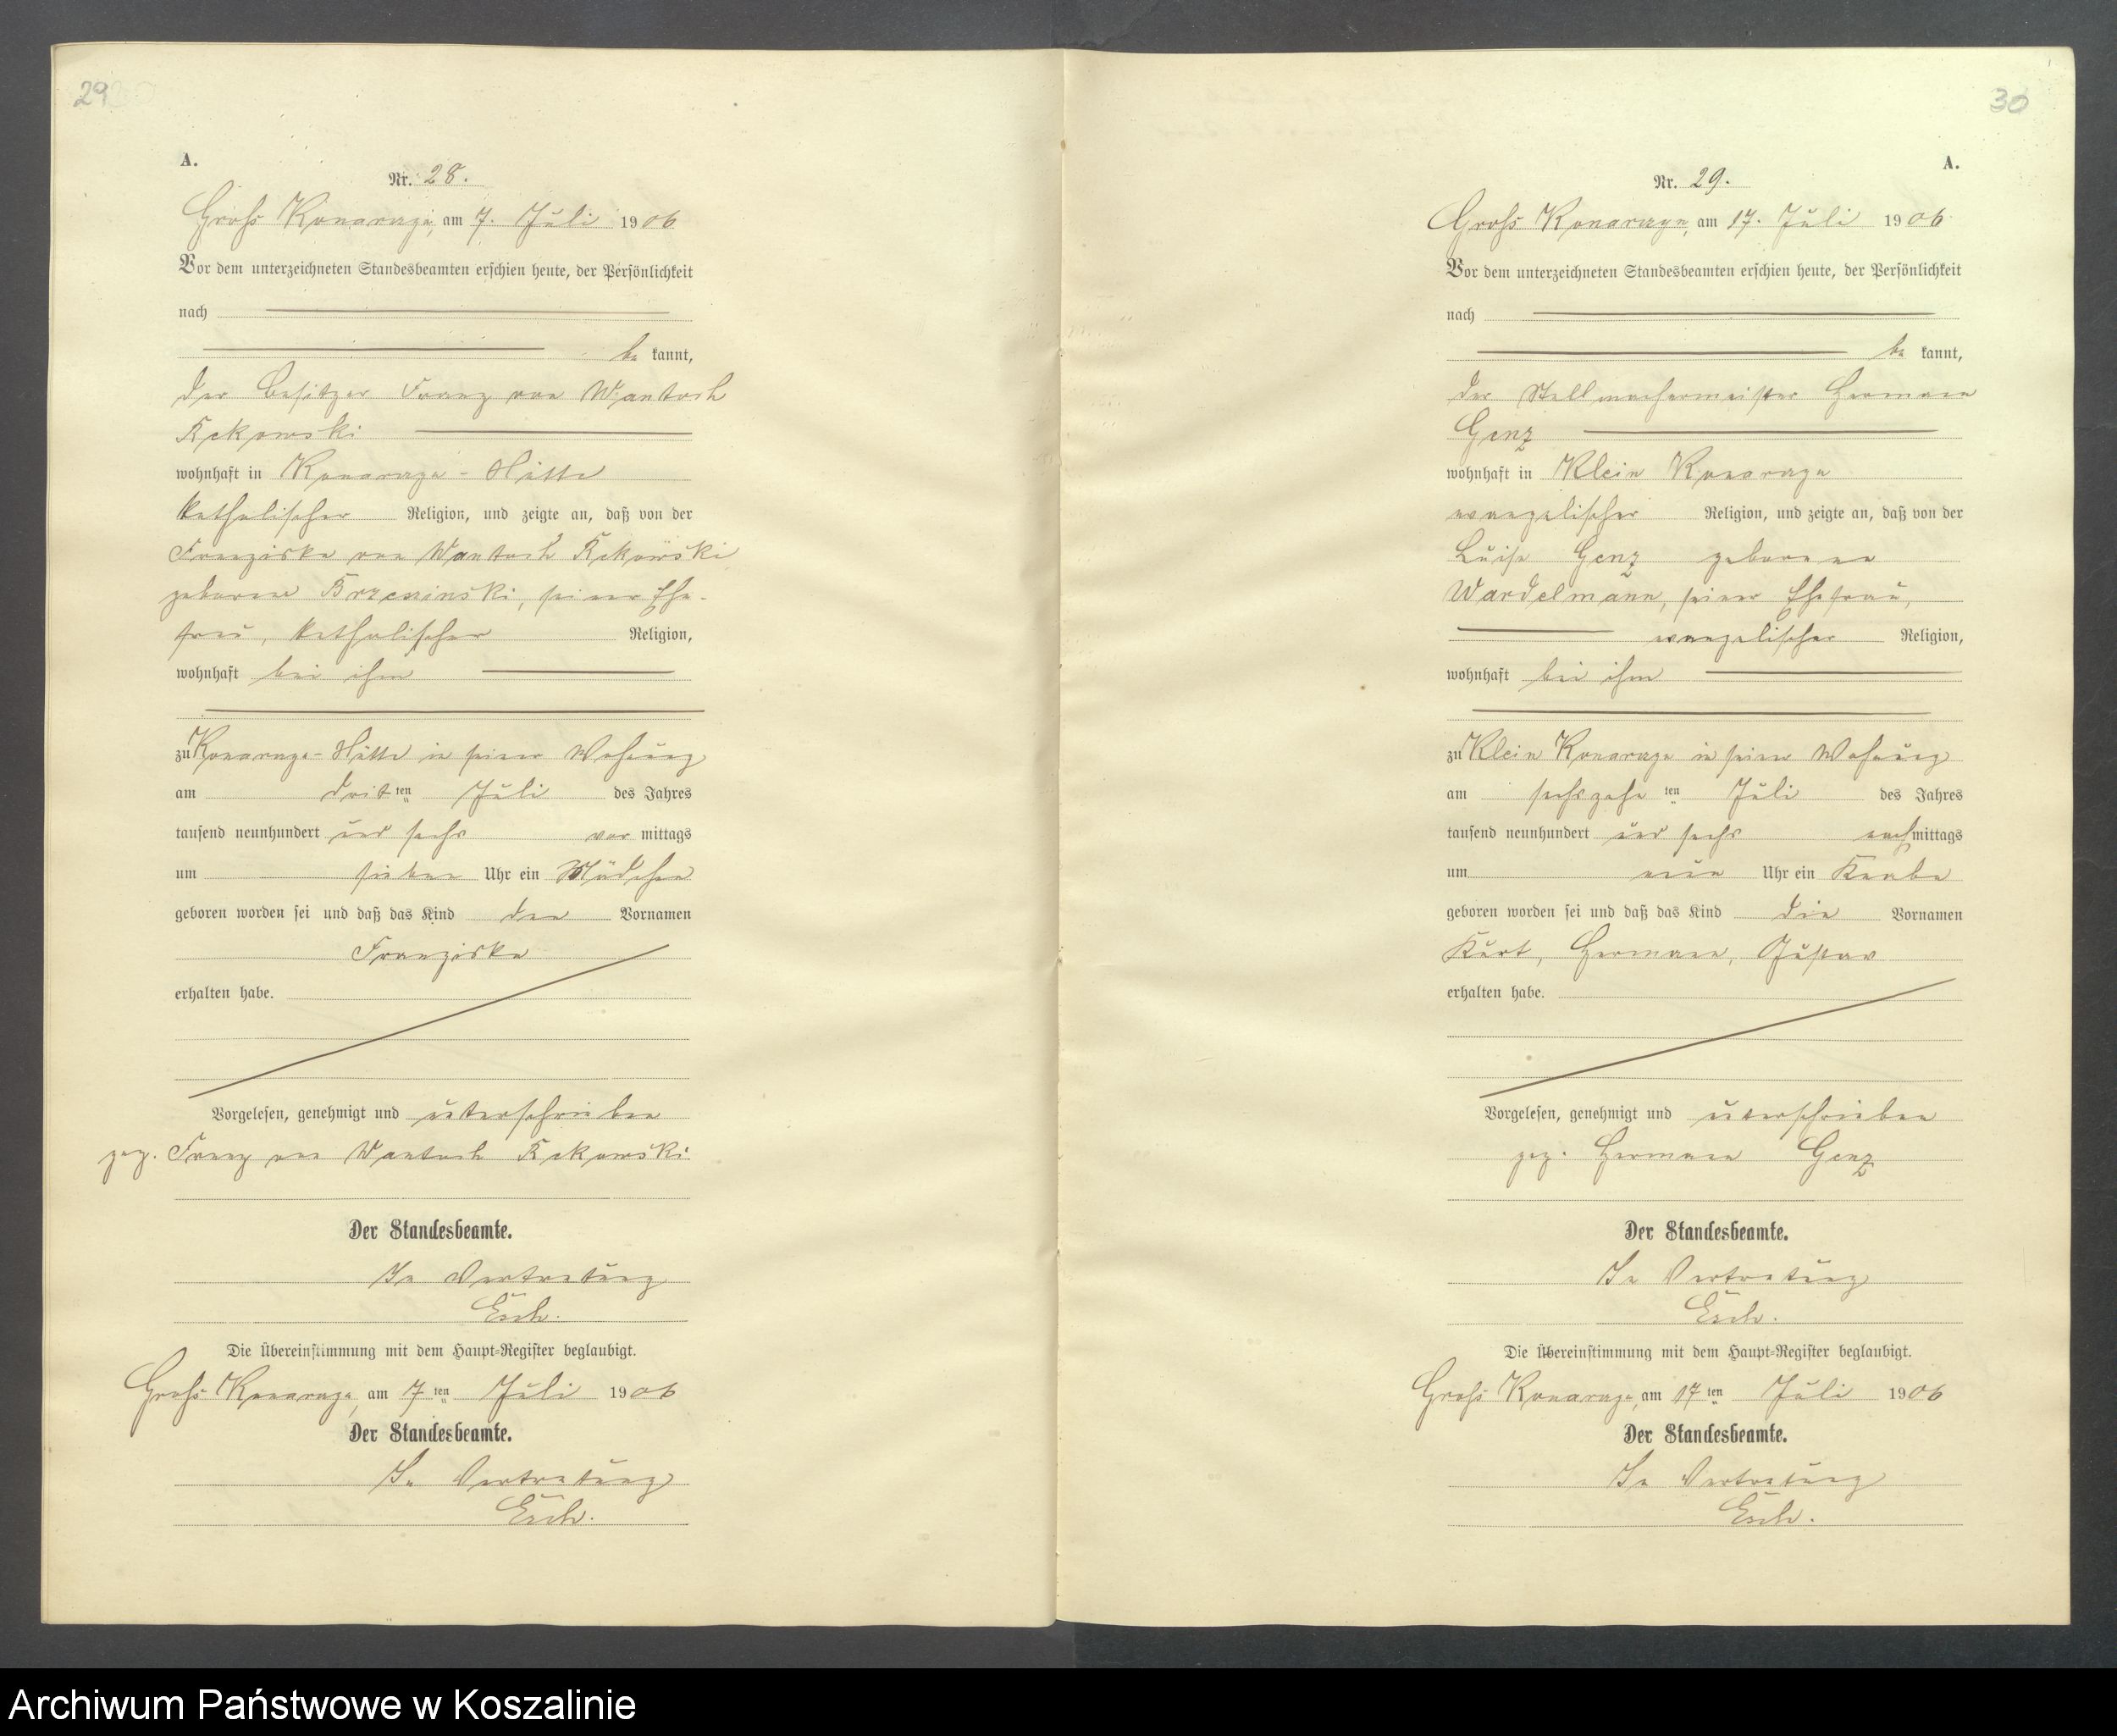 29
A.
Nr. 28.
Gross Konarzyn, am 7. Juli 1906
Vor dem unterzeichneten Standesbeamten erschien heute, der Persönlichkeit
nach
be kannt,
der Besitzer Franz von Wantoch
Rekowski
wohnhaft in Konarzyn-Hütte
katholischer Religion, und zeigte an, daß von der
Franziska von Wantoch Rekowski
geborene Brzezinski, seiner Ehe-
frau, katholischer Religion,
wohnhaft bei ihm
zu Konarzyn-Hütte in seiner Wohnung
am dritten Juli des Jahres
tausend neunhundert und sechs vor mittags
um sieben Uhr ein Mädchen
geboren worden sei und daß das Kind den Vornamen
Franziska
erhalten habe.
Vorgelesen, genehmigt und unterschrieben
gez. Franz von Wantoch Rekowski
Der Standesbeamte.
In Vertretung
Esch.
Die Übereinstimmung mit dem Haupt-Register beglaubigt.
Gross Konarzyn, am 7ten Juli 1906
Der Standesbeamte.
In Vertretung
Esch.
30
A.
Nr. 29.
Gross Konarzyn, am 17. Juli 1906
Vor dem unterzeichneten Standesbeamten erschien heute, der Persönlichkeit
nach
be kannt,
der Stellmachermeister Hermann
Genz
wohnhaft in Klein Konarzyn
evangelischer Religion, und zeigte an, daß von der
Luise Genz geborene
Wardelmann, seiner Ehefrau,
evangelischer Religion,
wohnhaft bei ihm
zu Klein Konarzyn in seiner Wohnung
am sechszehnten Juli des Jahres
tausend neunhundert und sechs nachmittags
um neun Uhr ein Knabe
geboren worden sei und daß das Kind die Vornamen
Kurt, Hermann, Gustav
erhalten habe.
Vorgelesen, genehmigt und unterschrieben
gez. Hermann Genz
Der Standesbeamte.
In Vertretung
Esch.
Die Übereinstimmung mit dem Haupt-Register beglaubigt.
Gross Konarzyn, am 17ten Juli 1906
Der Standesbeamte.
In Vertretung
Esch.
Archiwum Państwowe w Koszalinie